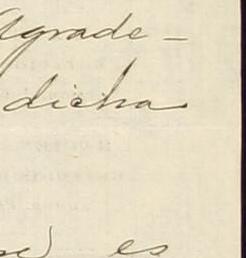 Agrade-
dicha
es